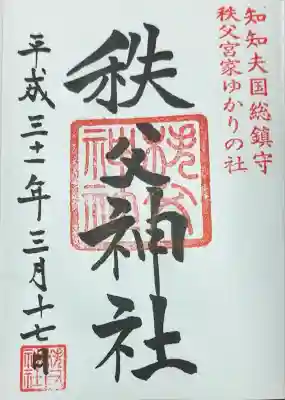 知知夫国総鎮守
秩父宮家ゆかりの社
秩父神社
平成三十一年三月十七日
秩父神社